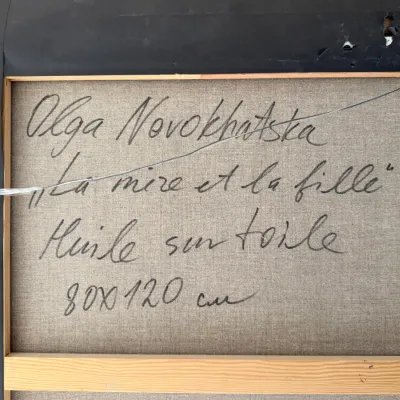 Olga Novokhatska
„La mere et la fille"
Huile sur toile
80x120 cm